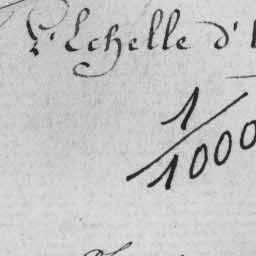 L'Echelle d'
1/1000